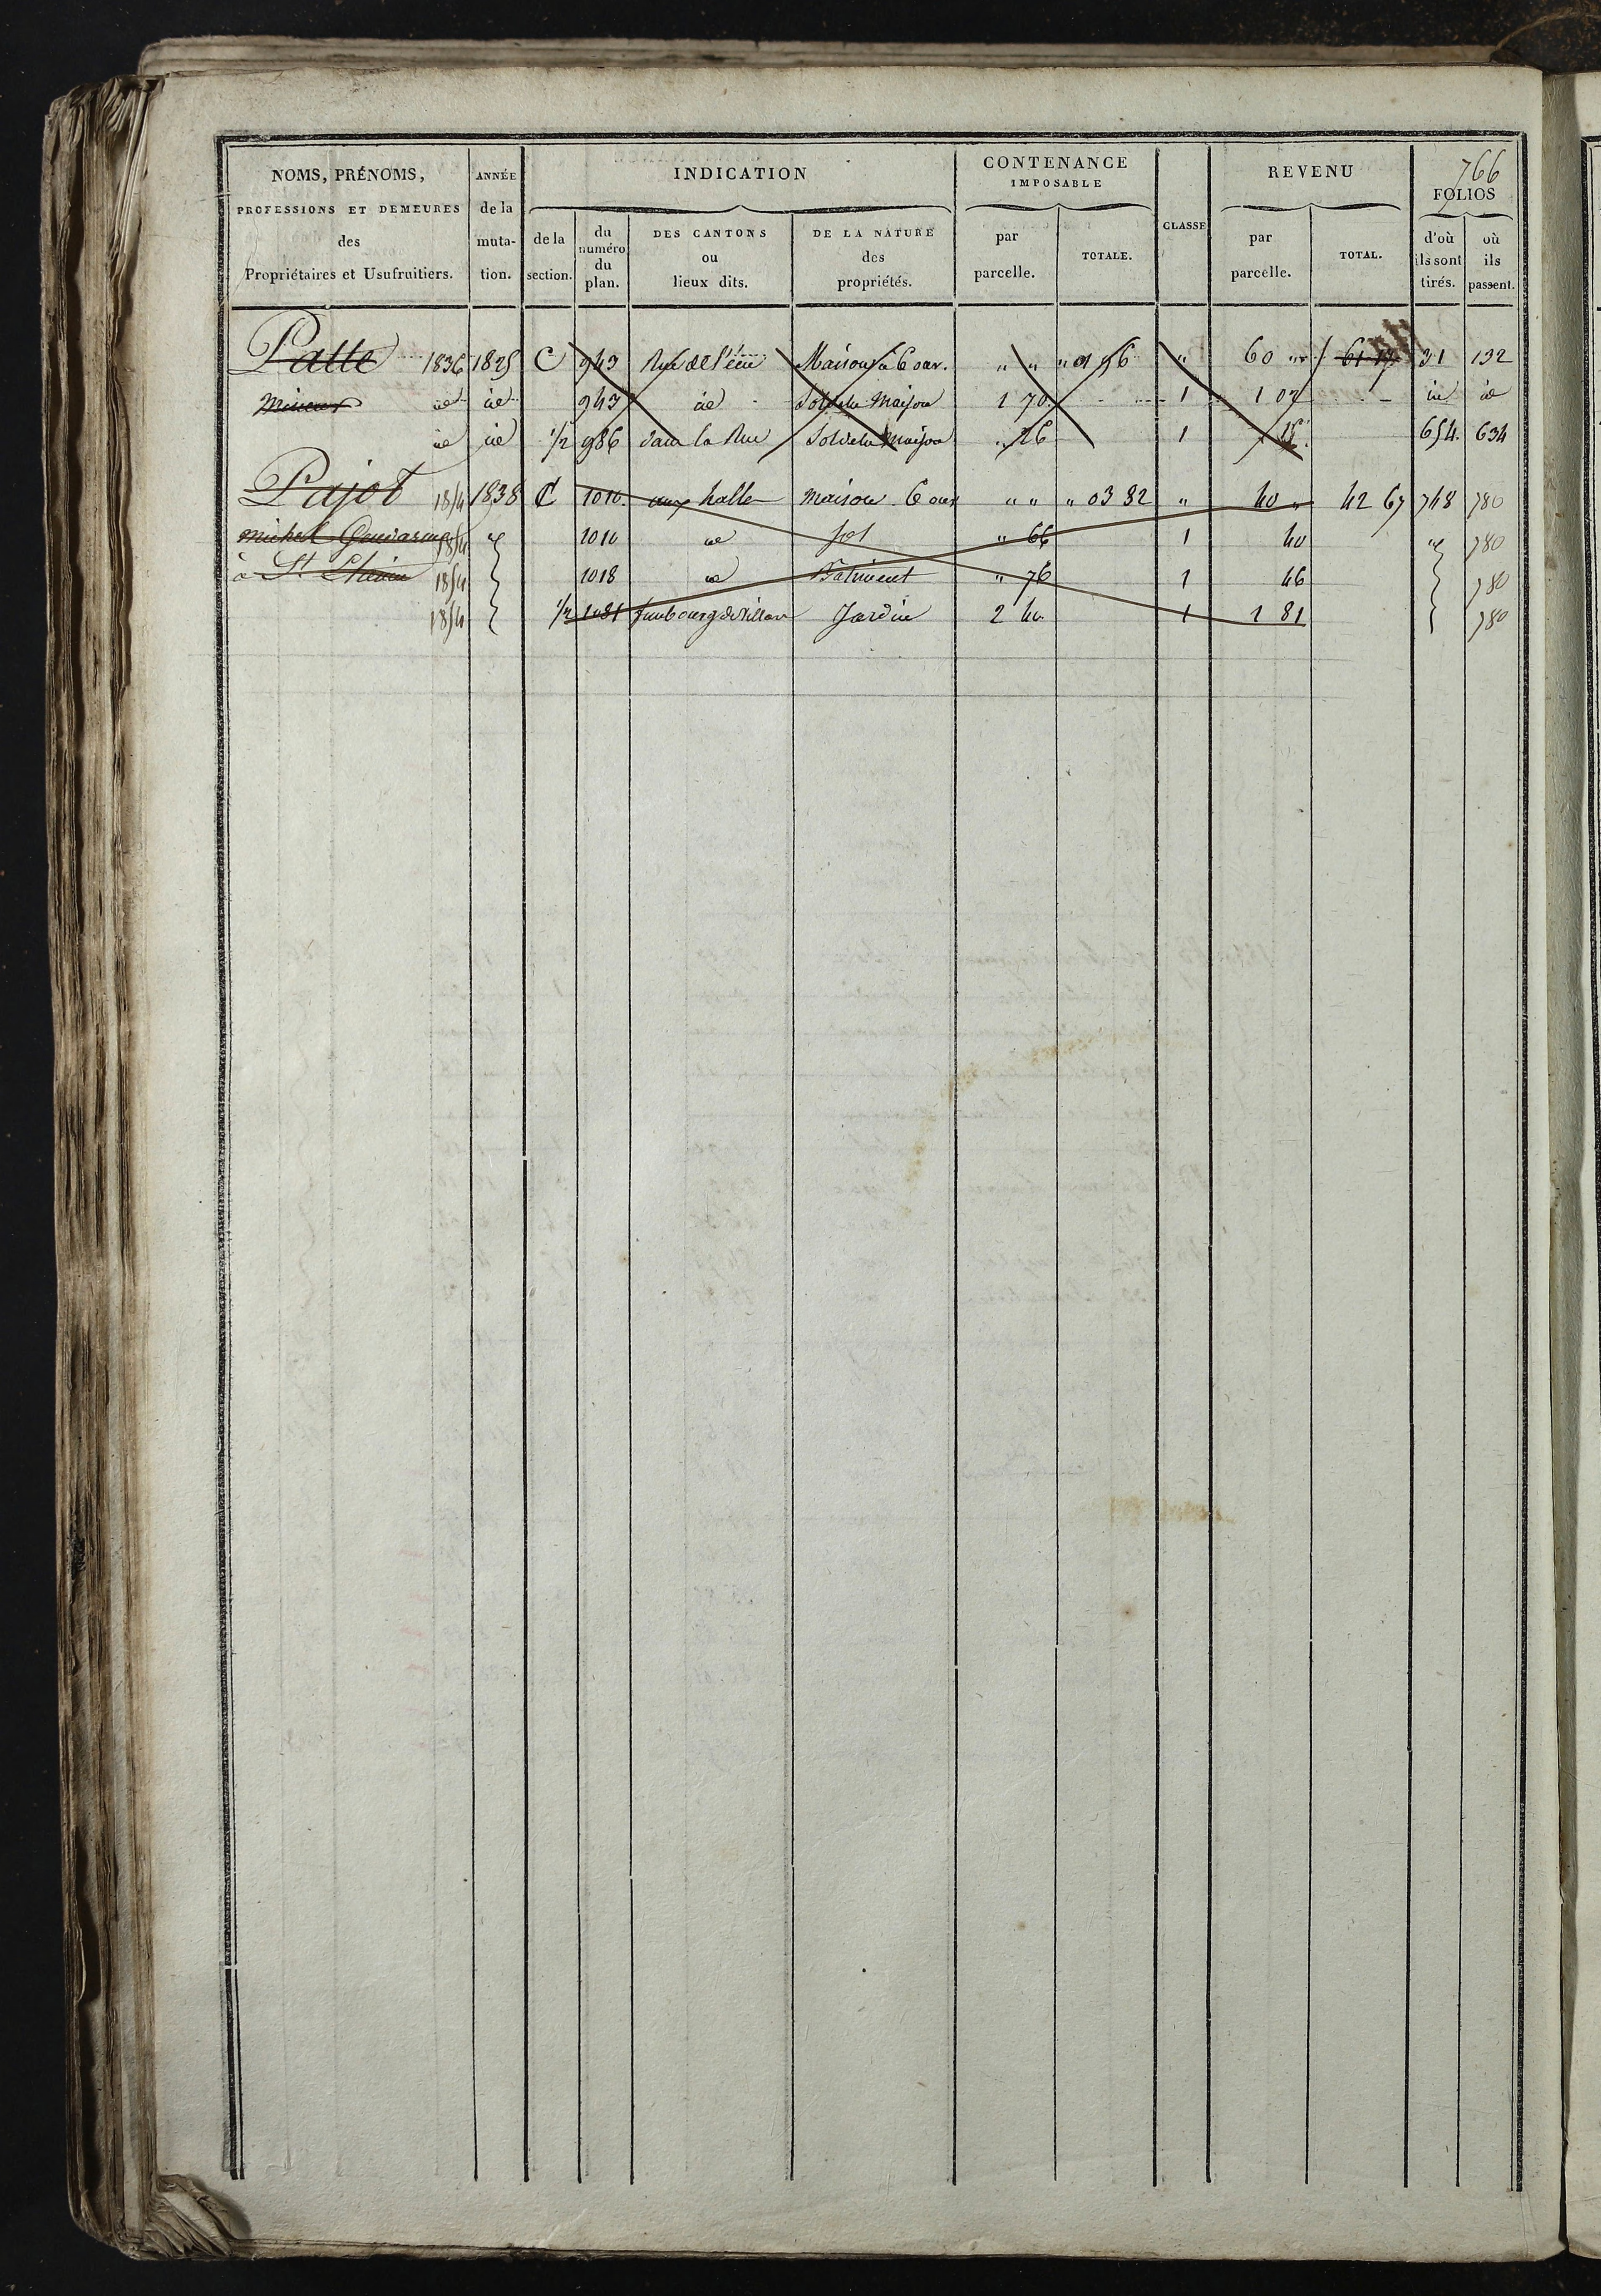 766
NOMS, PRÉNOMS, PROFESSIONS ET DEMEURES des Propriétaires et Usufruitiers.
ANNÉE de la muta-tion.
INDICATION
de la section.
du numéro du plan.
DES CANTONS ou lieux dits.
DE LA NATURE des propriétés.
CONTENANCE IMPOSABLE
par parcelle.
TOTALE.
CLASSE
REVENU
par parcelle.
TOTAL.
FOLIOS
d'où ils sont tirés.
où ils passent.
Patte 1836 1825 C 943 Maison 6 ouv. " " " 01 96 " 60 " 61 17 31 132
Mineur id id 943 id Sol de la Maison 1 70 1 1 02 id id
id id 1/2 986 dans la Rue Sol de la Maison " 26 1 15 654 634
Pajot 1854 1838 C 1010 aux halle maison 6 ouv " " " 03 82 " 40 " 42 67 748 780
michel 1854 " 1010 id sol " 66 1 40 " 780
à St. 1854 1018 id Batiment " 76 1 46 780
1854 1/2 1081 faubourg de Jardin 2 40 1 1 81 780